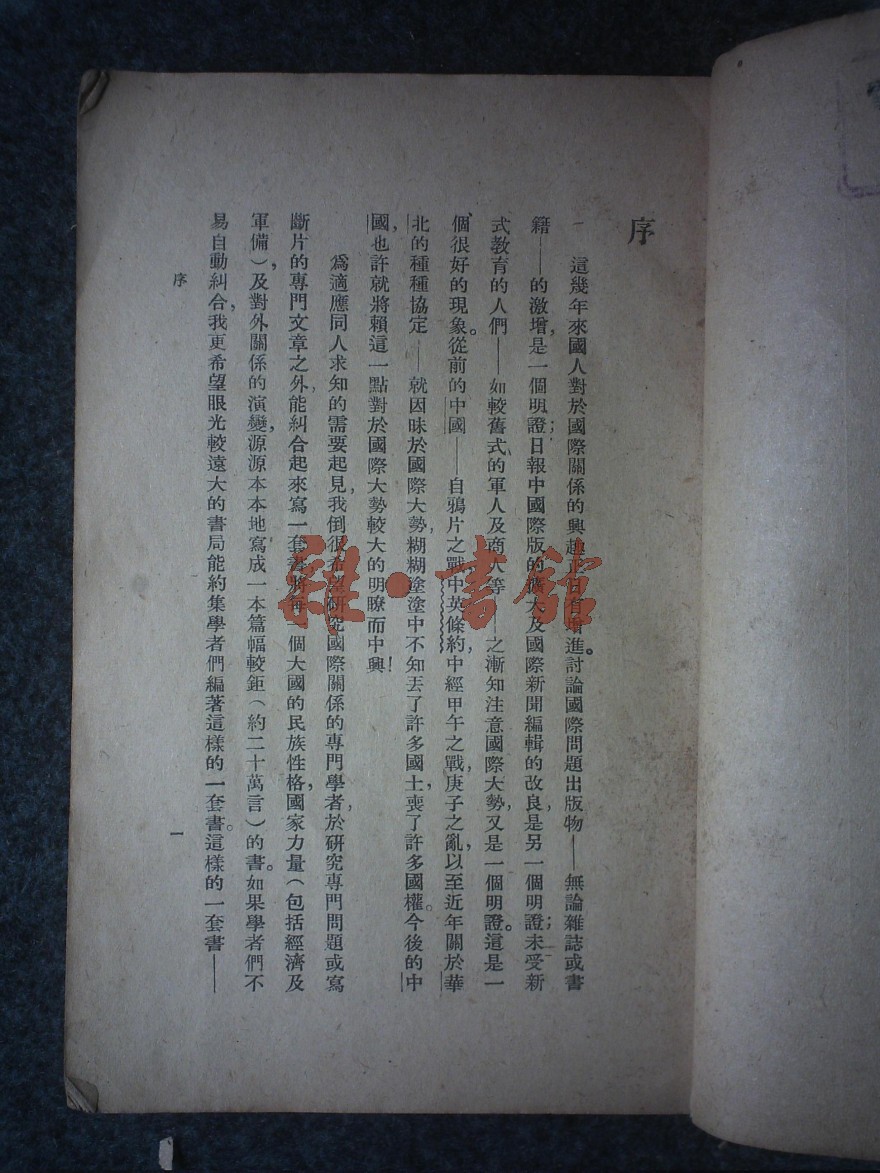 序
這幾年來國人對於國際關係的興趣正日有增進。討論國際問題出版物——無論雜誌或書
籍——的激增，是一個明證；日報中國際版的擴大及國際新聞編輯的改良，是另一個明證；未受新
式教育的人們——如較舊式的軍人及商人等——之漸知注意國際大勢，又是一個明證。這是一
個很好的現象。從前的中國——自鴉片之戰中英條約，中經甲午之戰，庚子之亂，以至近年關於華
北的種種協定——就因昧於國際大勢，糊糊塗塗中不知丟了許多國土，喪了許多國權。今後的中
國，也許就將賴這一點對於國際大勢較大的明瞭而中興！
爲適應同人求知的需要起見，我倒很希望研究國際關係的專門學者，於研究專門問題或寫
斷片的專門文章之外，能糾合起來寫一套書，將每一個大國的民族性格，國家力量（包括經濟及
軍備），及對外關係的演變，源源本本地寫成一本篇幅較鉅（約二十萬言）的書。如果學者們不
易自動糾合，我更希望眼光較遠大的書局能約集學者們編著這樣的一套書。這樣的一套書——
序
一
雜·書館